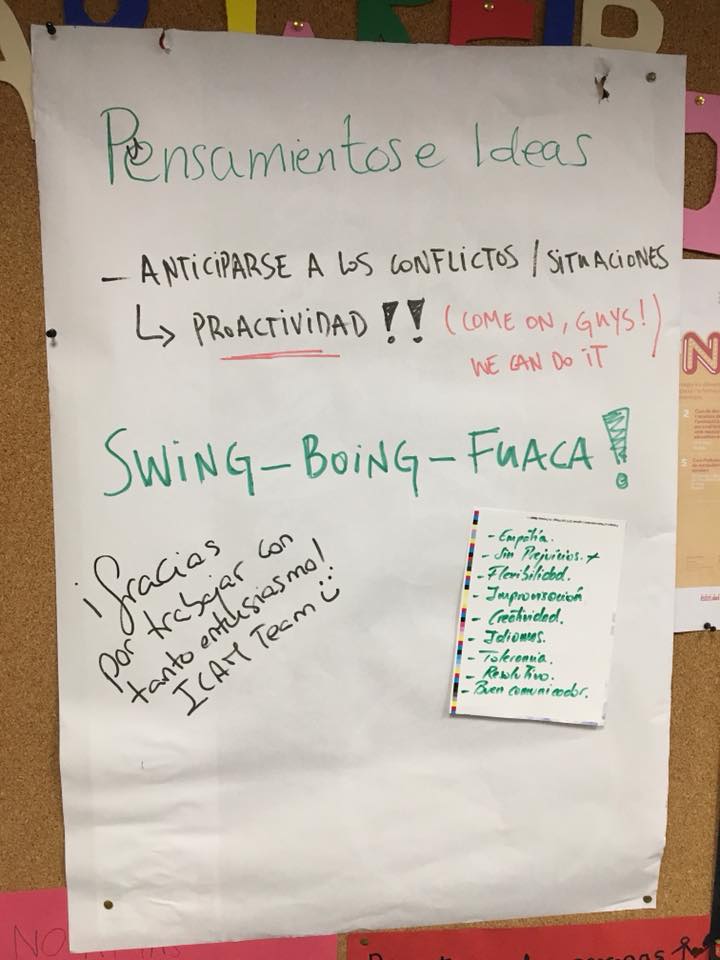 Pensamientos e Ideas
- ANTICIPARSE A LOS CONFLICTOS / SITUACIONES
↳ PROACTIVIDAD !! (COME ON, GUYS!)
WE CAN DO IT
SWING - BOING - FUACA!
¡Gracias
por trabajar con
tanto entusiasmo!
ICAM Team :)
- Empatía.
- Sin Prejuicios. +
- Flexibilidad.
- Improvisación
- Creatividad.
- Idiomas.
- Tolerancia.
- Resolutivo.
- Buen comunicador.